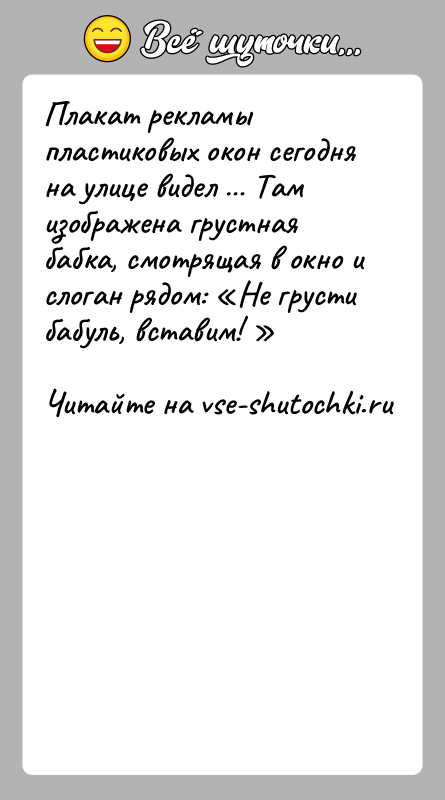 Всё шуточки...
Плакат рекламы
пластиковых окон сегодня
на улице видел ... Там
изображена грустная
бабка, смотрящая в окно и
слоган рядом: «Не грусти
бабуль, вставим! »
Читайте на vse-shutochki.ru